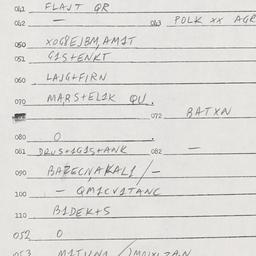 041 FLAJT QR
042 — 043 POLK xx AGR
050 XO98EJBM,AM1T
051 G1S+ENKT
060 LAJG+FIRN
070 MARS+EL1K QU.
072 BATXN
080 O
081 DRUS+1G1S+ANK 082 —
090 BARECNAKAL1/—
100 — QM1CV1TANC
110 B1DEK+S
052 O
053